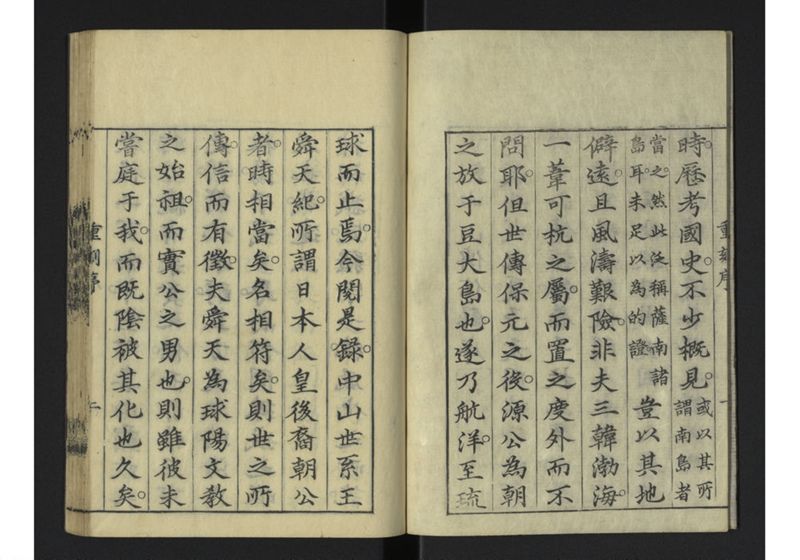 重刻序
一
時歷考國史。不少概見。
或以其所
謂南島者
當之。然此泛稱薩南諸
島耳。未足以為的證
豈以其地
僻遠。且風濤艱險。非夫三韓渤海。
一葦可杭之屬。而置之度外而不
問耶。但世傳保元之後。源公為朝
之放于豆大島也。遂乃航洋。至琉
球而止焉。今閱是錄。中山世系王
舜天紀。所謂日本人皇後裔朝公
者。時相當矣。名相符矣。則世之所
傳。信而有徵。夫舜天為球陽文教
之始祖。而實公之男也。則雖彼未
嘗庭于我。而既陰被其化也久矣。
重刻序